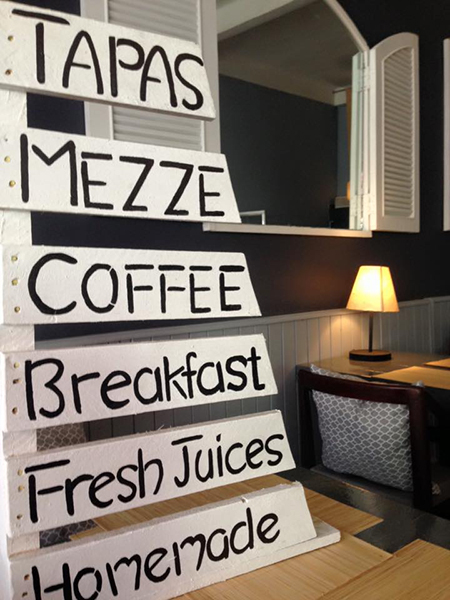 TAPAS
MEZZE
COFFEE
Breakfast
Fresh Juices
Homemade